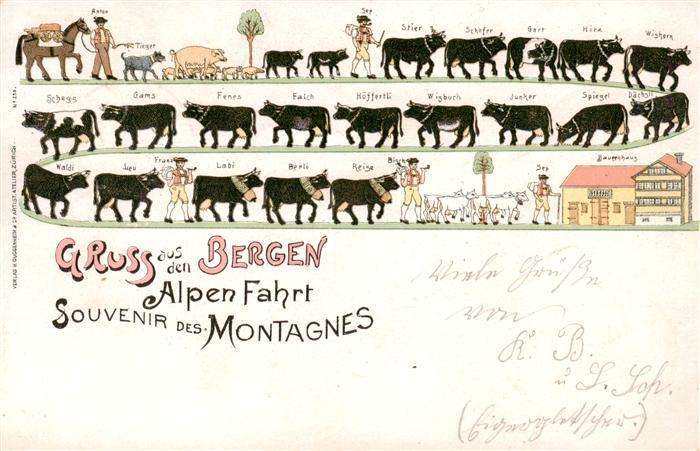 Anton Tieger Sep Stier Schäfer Gart Hirz Wighorn
Schegg Gams Fenes Falch Höfferli Wigbuch Junker Spiegel Dächsli
Waldi Leu Franz Labi Berli Reiga Bisch Sep Bauernhaus
No 1234
VERLAG H. GUGGENHEIM & Co ARTIST. ATELIER, ZÜRICH.
GRUSS aus den BERGEN
Alpen Fahrt
SOUVENIR DES MONTAGNES
Viele Grüße
von
K. B.
u L.
(Eigergletscher.)